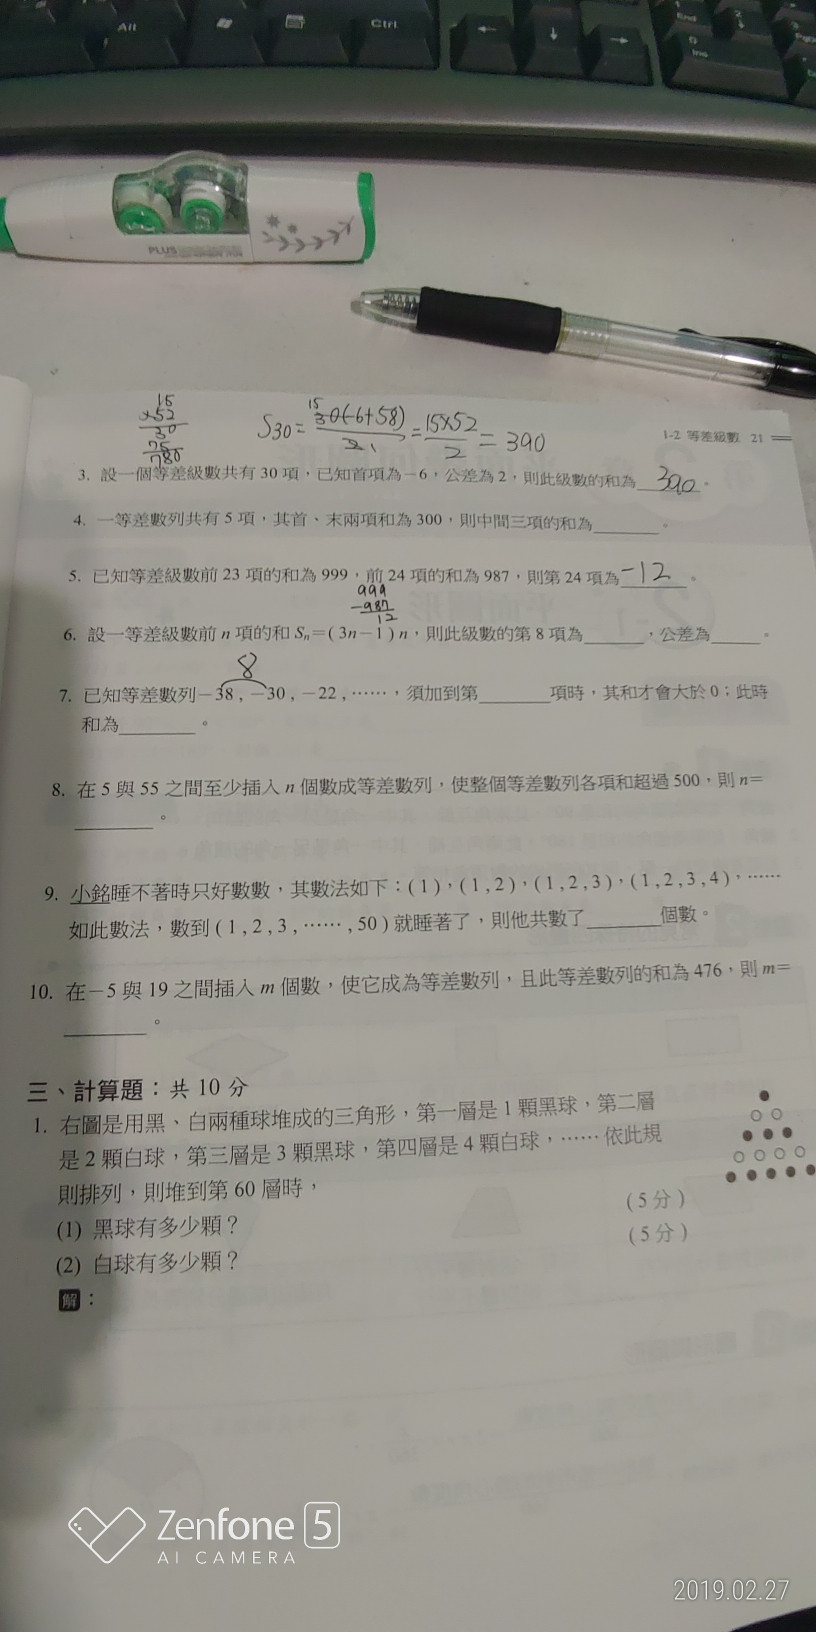 Alt
Ctrl
End
Ins
PLUS
15
×52
30
75
780
S30= 15 30(-6+58) / 2 1 = 15×52 / 2 = 390
1-2 等差級數 21
3. 設一個等差級數共有 30 項，已知首項為－6，公差為 2，則此級數的和為 390 。
4. 一等差數列共有 5 項，其首、末兩項和為 300，則中間三項的和為______。
5. 已知等差級數前 23 項的和為 999，前 24 項的和為 987，則第 24 項為 -12 。
999
-987
12
6. 設一等差級數前 n 項的和 Sn=( 3n－1 ) n，則此級數的第 8 項為______，公差為______。
8
7. 已知等差數列－38 , －30 , －22 , ……，須加到第______項時，其和才會大於 0；此時
和為______。
8. 在 5 與 55 之間至少插入 n 個數成等差數列，使整個等差數列各項和超過 500，則 n＝
______。
9. 小銘睡不著時只好數數，其數法如下：( 1 )，( 1 , 2 )，( 1 , 2 , 3 )，( 1 , 2 , 3 , 4 )，……
如此數法，數到 ( 1 , 2 , 3 , …… , 50 ) 就睡著了，則他共數了______個數。
10. 在－5 與 19 之間插入 m 個數，使它成為等差數列，且此等差數列的和為 476，則 m＝
______。
三、計算題：共 10 分
1. 右圖是用黑、白兩種球堆成的三角形，第一層是 1 顆黑球，第二層
是 2 顆白球，第三層是 3 顆黑球，第四層是 4 顆白球，…… 依此規
則排列，則堆到第 60 層時，
(1) 黑球有多少顆？ ( 5 分 )
(2) 白球有多少顆？ ( 5 分 )
解：
Zenfone 5
AI CAMERA
2019.02.27